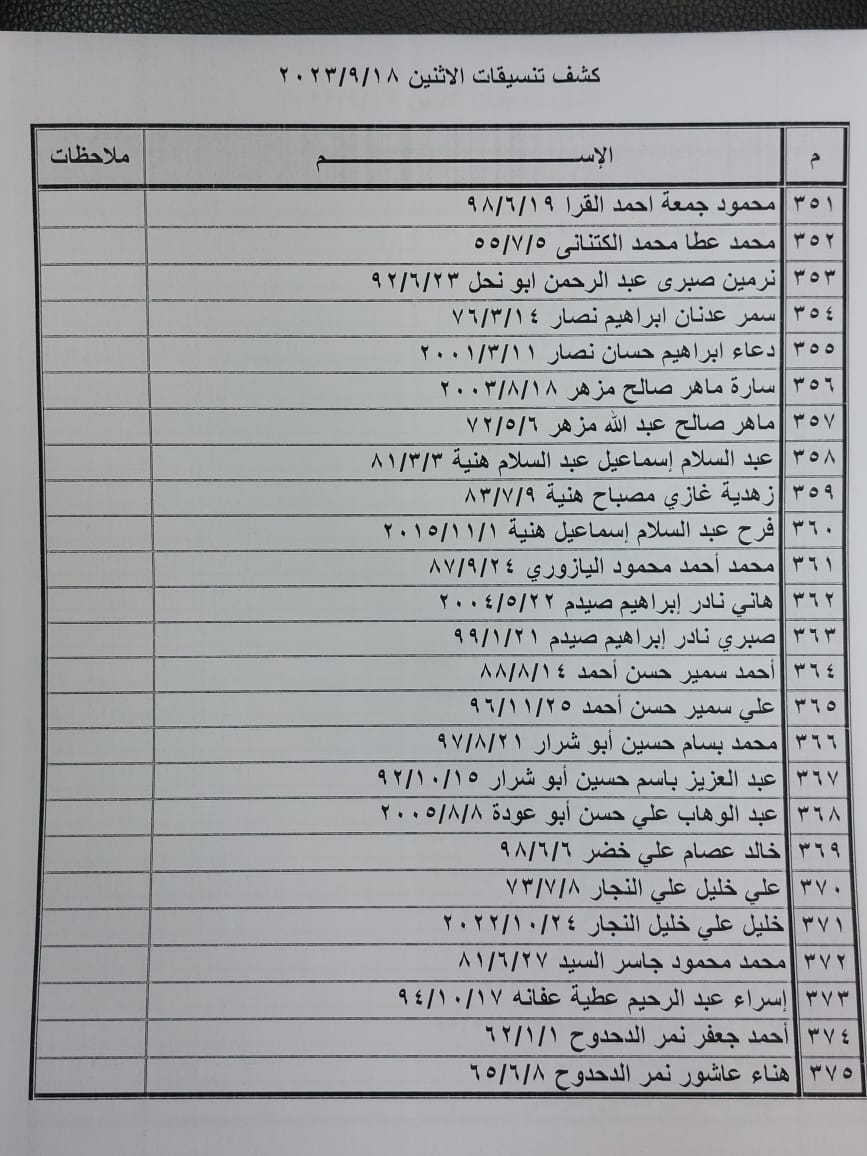 كشف تنسيقات الاثنين ٢٠٢٣/٩/١٨
م الإســـــــــــــــــــــم ملاحظات
٣٥١ محمود جمعة احمد القرا ٩٨/٦/١٩
٣٥٢ محمد عطا محمد الكتنانى ٥٥/٧/٥
٣٥٣ نرمين صبرى عبد الرحمن ابو نحل ٩٢/٦/٢٣
٣٥٤ سمر عدنان ابراهيم نصار ٧٦/٣/١٤
٣٥٥ دعاء ابراهيم حسان نصار ٢٠٠١/٣/١١
٣٥٦ سارة ماهر صالح مزهر ٢٠٠٣/٨/١٨
٣٥٧ ماهر صالح عبد الله مزهر ٧٢/٥/٦
٣٥٨ عبد السلام إسماعيل عبد السلام هنية ٨١/٣/٣
٣٥٩ زهدية غازي مصباح هنية ٨٣/٧/٩
٣٦٠ فرح عبد السلام إسماعيل هنية ٢٠١٥/١١/١
٣٦١ محمد أحمد محمود اليازوري ٨٧/٩/٢٤
٣٦٢ هاني نادر إبراهيم صيدم ٢٠٠٤/٥/٢٢
٣٦٣ صبري نادر إبراهيم صيدم ٩٩/١/٢١
٣٦٤ أحمد سمير حسن أحمد ٨٨/٨/١٤
٣٦٥ علي سمير حسن أحمد ٩٦/١١/٢٥
٣٦٦ محمد بسام حسين أبو شرار ٩٧/٨/٢١
٣٦٧ عبد العزيز باسم حسين أبو شرار ٩٢/١٠/١٥
٣٦٨ عبد الوهاب علي حسن أبو عودة ٢٠٠٥/٨/٨
٣٦٩ خالد عصام علي خضر ٩٨/٦/٦
٣٧٠ علي خليل علي النجار ٧٣/٧/٨
٣٧١ خليل علي خليل النجار ٢٠٢٢/١٠/٢٤
٣٧٢ محمد محمود جاسر السيد ٨١/٦/٢٧
٣٧٣ إسراء عبد الرحيم عطية عفانه ٩٤/١٠/١٧
٣٧٤ أحمد جعفر نمر الدحدوح ٦٢/١/١
٣٧٥ هناء عاشور نمر الدحدوح ٦٥/٦/٨